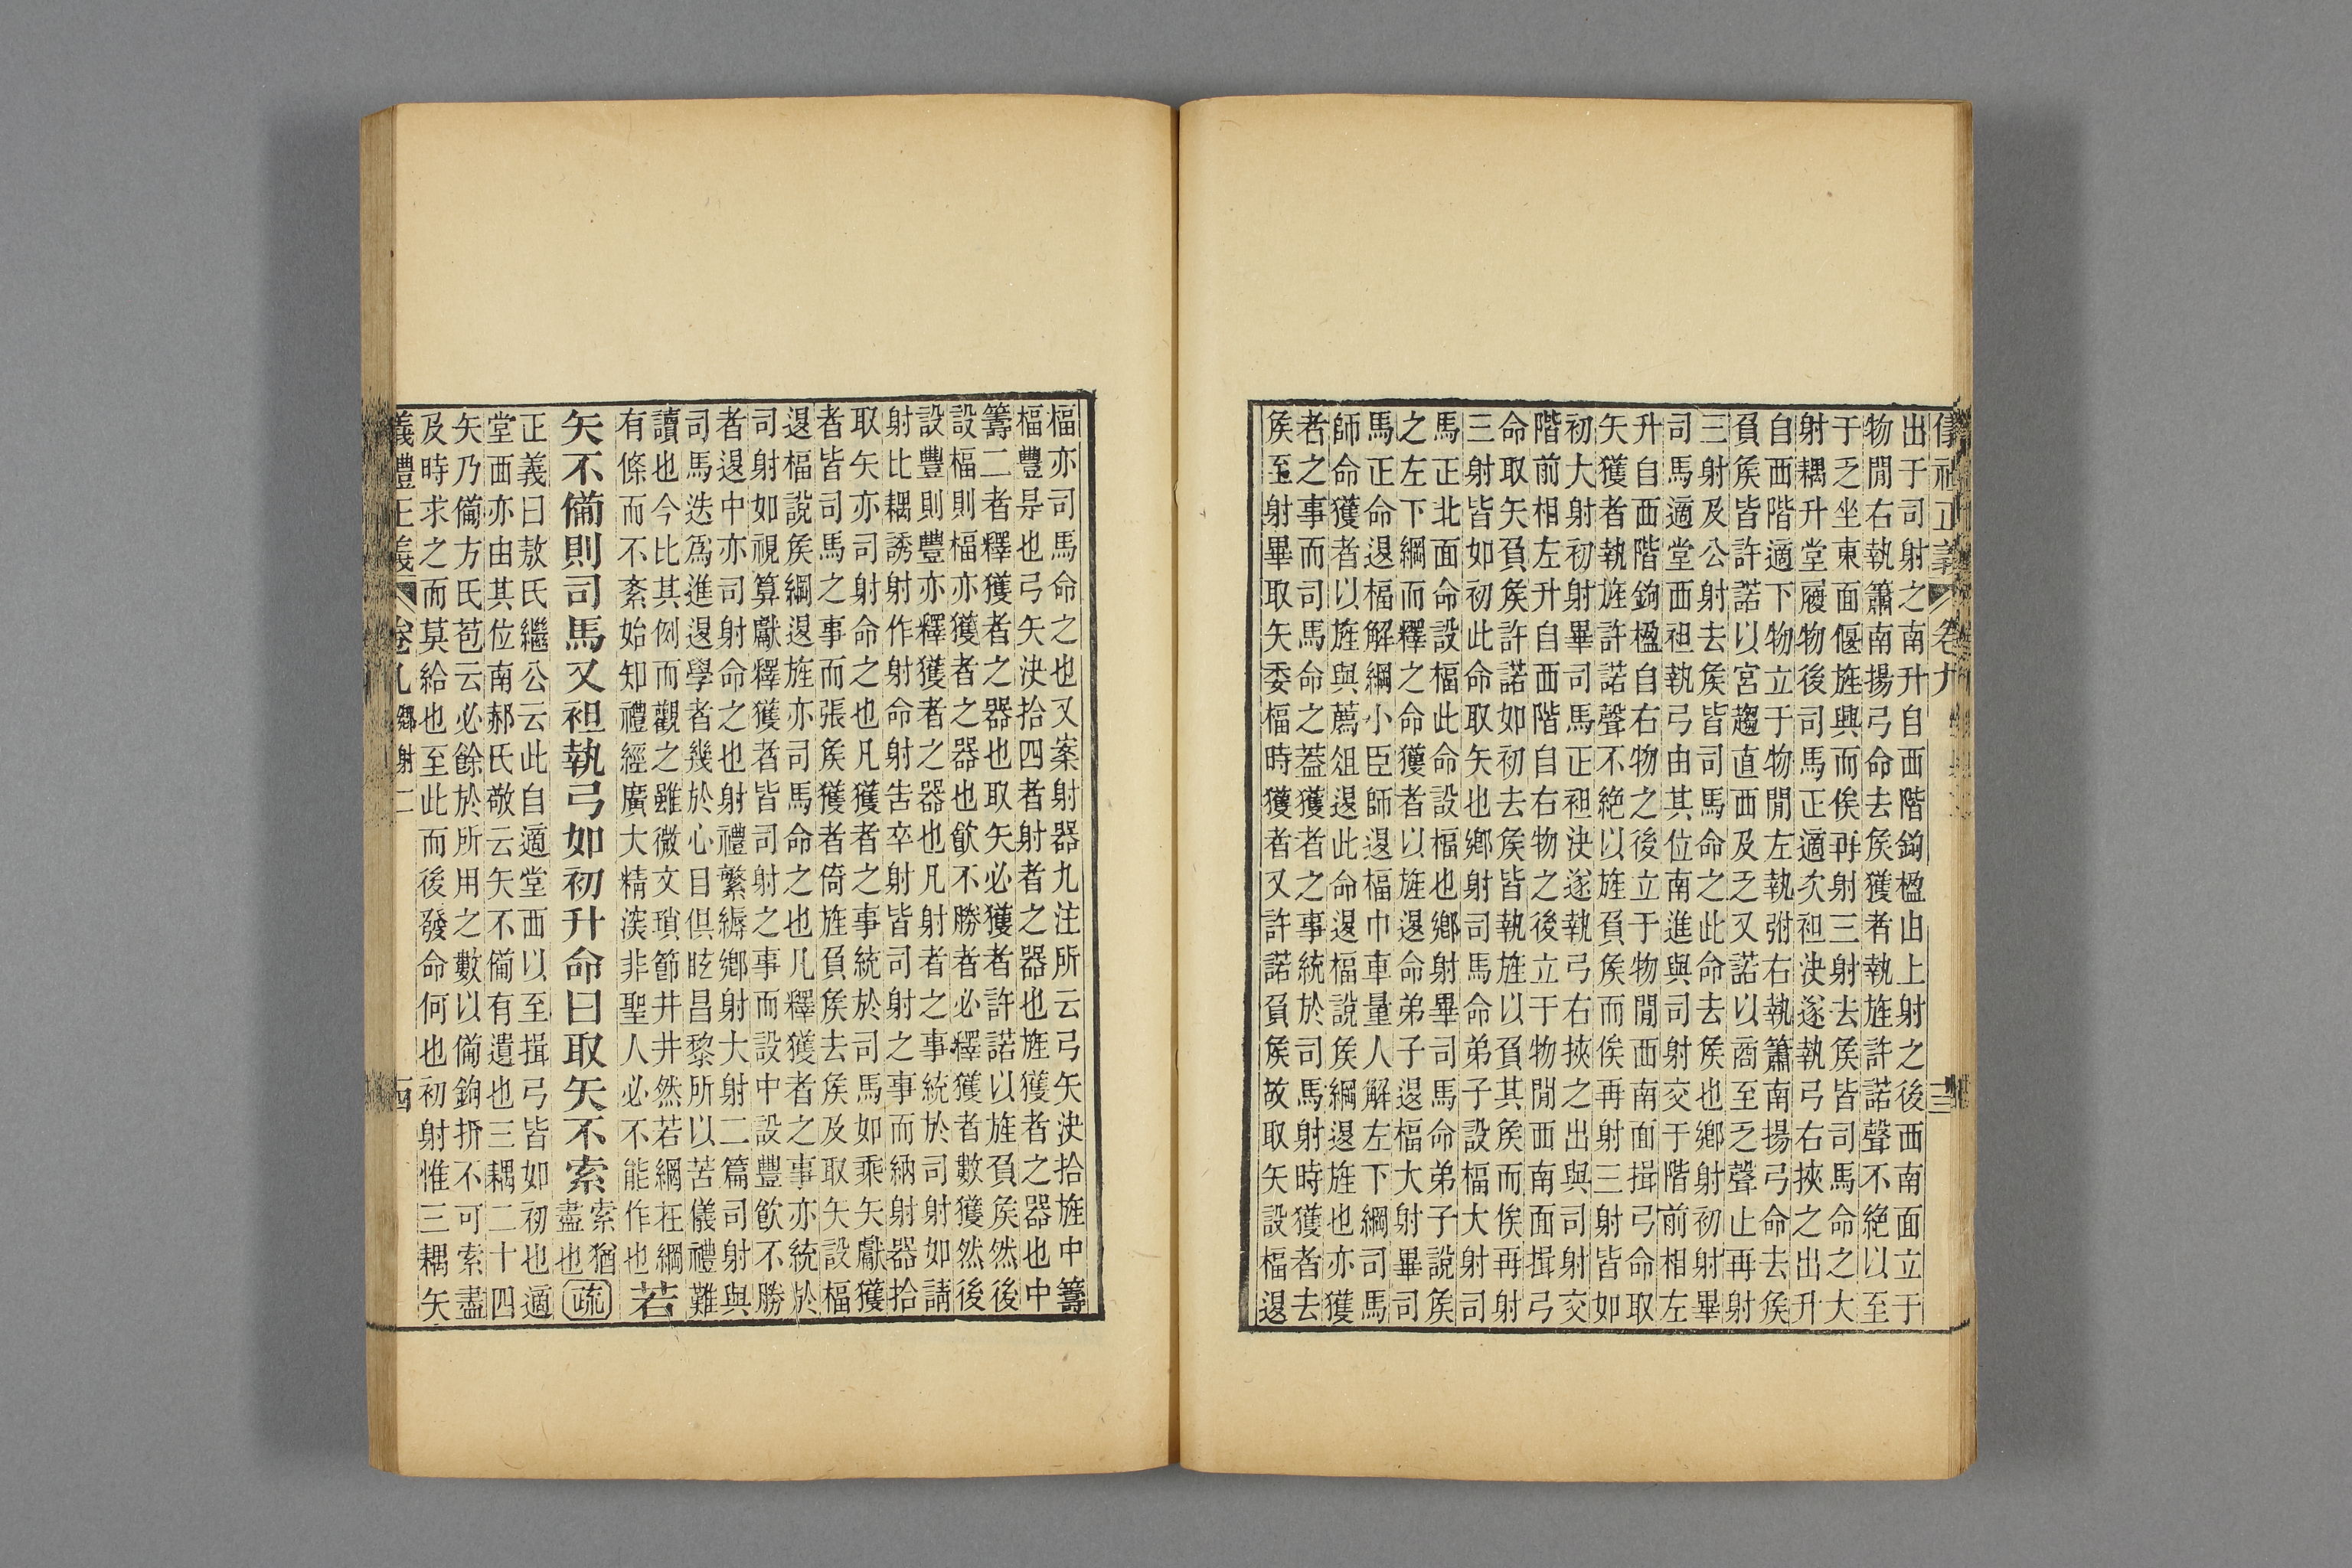 正義 卷九
出于司射之南升自西階鉤楹由上射之後西南面立于
物閒右執簫南揚弓命去矦獲者執旌許諾聲不絕以至
于乏坐東面偃旌興而俟再射三射去矦皆司馬命之大
射耦升堂履物後司馬正適次袒決遂執弓右挾之出升
自西階適下物立于物閒左執弣右執簫南揚弓命去矦
負矦皆許諾以宮趨直西及乏又諾以商至乏聲止再射
三射及公射去矦皆司馬命之此命去矦也鄉射初射畢
司馬適堂西袒執弓由其位南進與司射交于階前相左
升自西階鉤楹自右物之後立于物閒西南面揖弓命取
矢獲者執旌許諾聲不絕以旌負矦而俟再射三射皆如
初大射初射畢司馬正袒決遂執弓右挾之出與司射交
階前相左升自西階自右物之後立于物閒西南面揖弓
命取矢負矦許諾如初去矦皆執旌以負其矦而俟再射
三射皆如初此命取矢也鄉射司馬命弟子設楅大射司
馬正北面命設楅此命設楅也鄉射畢司馬命弟子說矦
之左下綱而釋之命獲者以旌退命弟子退楅大射畢司
馬正命退楅解綱小臣師退楅巾車量人解左下綱司馬
師命獲者以旌與薦俎退此命退楅說矦綱退旌也亦獲
者之事而司馬命之蓋獲者之事統於司馬射時獲者去
矦至射畢取矢委楅時獲者又許諾負矦故取矢設楅退
楅亦司馬命之也又案射器九注所云弓矢決拾旌中籌
楅豐是也弓矢決拾四者射者之器也旌獲者之器也中
籌二者釋獲者之器也取矢必獲者許諾以旌負矦然後
設楅則楅亦獲者之器也飮不勝者必釋獲者數獲然後
設豐則豐亦釋獲者之器也凡射者之事統於司射如請
射比耦誘射作射命射告卒射皆司射之事而納射器拾
取矢亦司射命之也凡獲者之事統於司馬如乘矢獻獲
者皆司馬之事而張矦獲者倚旌負矦去矦及取矢設楅
退楅說矦綱退旌亦司馬命之也凡釋獲者之事亦統於
司射如視算獻釋獲者皆司射之事而設中設豐飮不勝
者退中亦司射命之也射禮繁縟鄉射大射二篇司射與
司馬迭爲進退學者幾於心目俱眩昌黎所以苦儀禮難
讀也今比其例而觀之雖微文瑣節井井然若綱在綱
有條而不紊始知禮經廣大精深非聖人必不能作也若
矢不備則司馬又袒執弓如初升命曰取矢不索索猶盡也疏
正義曰敖氏繼公云此自適堂西以至揖弓皆如初也適
堂西亦由其位南郝氏敬云矢不備有遺也三耦二十四
矢乃備方氏苞云必餘於所用之數以備鉤折不可索盡
及時求之而莫給也至此而後發命何也初射惟三耦矢
禮正義 卷九 鄉射二